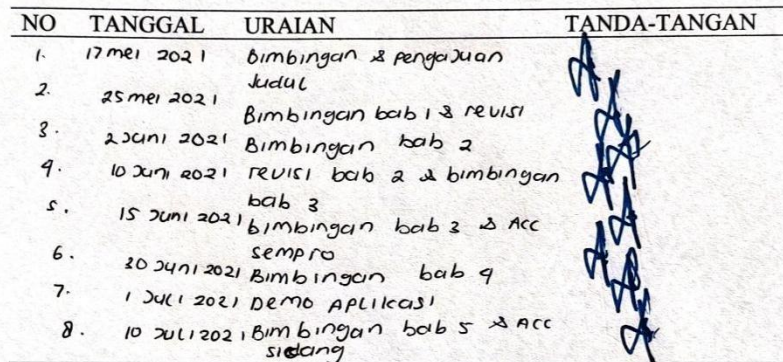 NO TANGGAL URAIAN TANDA-TANGAN
1. 17 mei 2021 Bimbingan & pengajuan
Judul
2. 25 mei 2021 Bimbingan bab 1 & revisi
3. 2 Juni 2021 Bimbingan bab 2
4. 10 Juni 2021 revisi bab 2 & bimbingan
bab 3
5. 15 Juni 2021 bimbingan bab 3 & ACC
sempro
6. 30 Juni 2021 Bimbingan bab 4
7. 1 Juli 2021 Demo Aplikasi
8. 10 Juli 2021 Bimbingan bab 5 & ACC
sidang